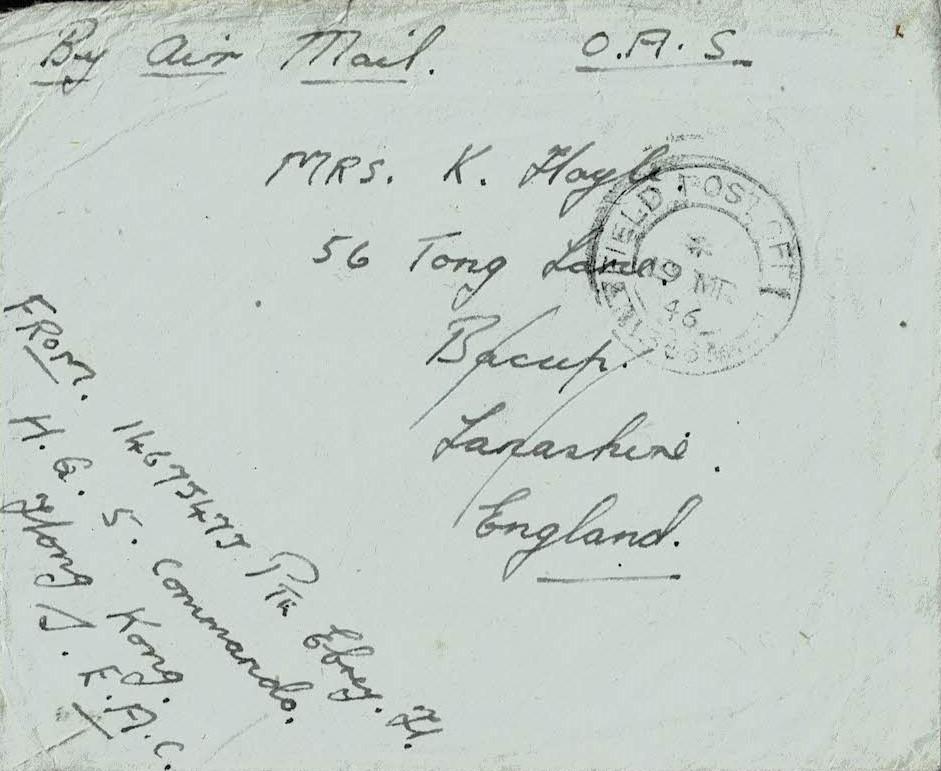 By Air Mail. O.A.S.
MRS. K. Hoyle.
56 Tong Lane,
Bacup.
Lanashire.
England.
FIELD POST OFFI
19 MR
46
FROM. 14673473 Pte Ebrey. H.
H. Q. 5. Commando.
Hong Kong.
S. E. A. C.